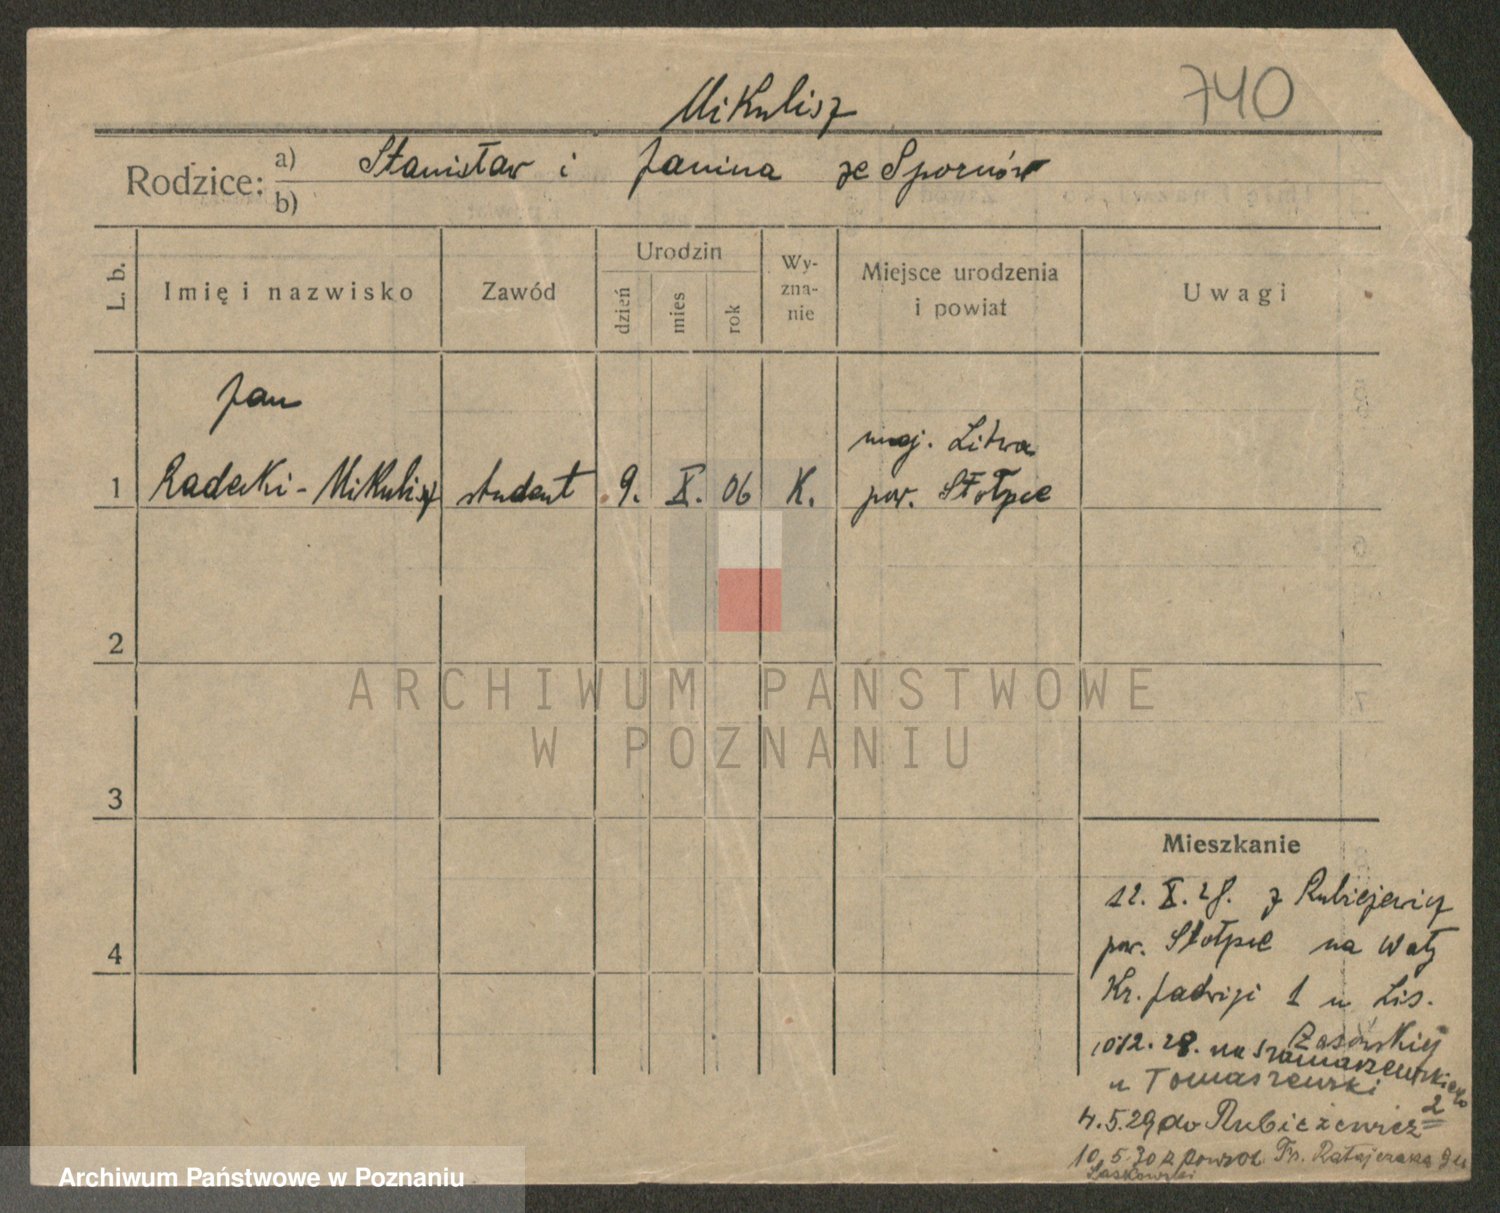 740
Mikulisz
Rodzice: a) Stanisław i Janina ze Spornów
b)
L. b. Imię i nazwisko Zawód Urodzin dzień mies rok Wy-zna-nie Miejsce urodzenia i powiat Uwagi
Jan
maj. Litwa
1 Radecki-Mikulisz student 9. X. 06 K. pow. Stołpce
2
ARCHIWUM PAŃSTWOWE
W POZNANIU
3
Mieszkanie
12. X. 28. z Rubiejewicz
4 pow. Stołpce na Wały
Kr. Jadwigi 1 u Lis.
10 12. 28. na Szamarzewskiego
u Tomaszewski 2
4.5.29 do Rubieżewicz
10.5.30 z powrot. Fr. Ratajczaka
Laskowski
Archiwum Państwowe w Poznaniu